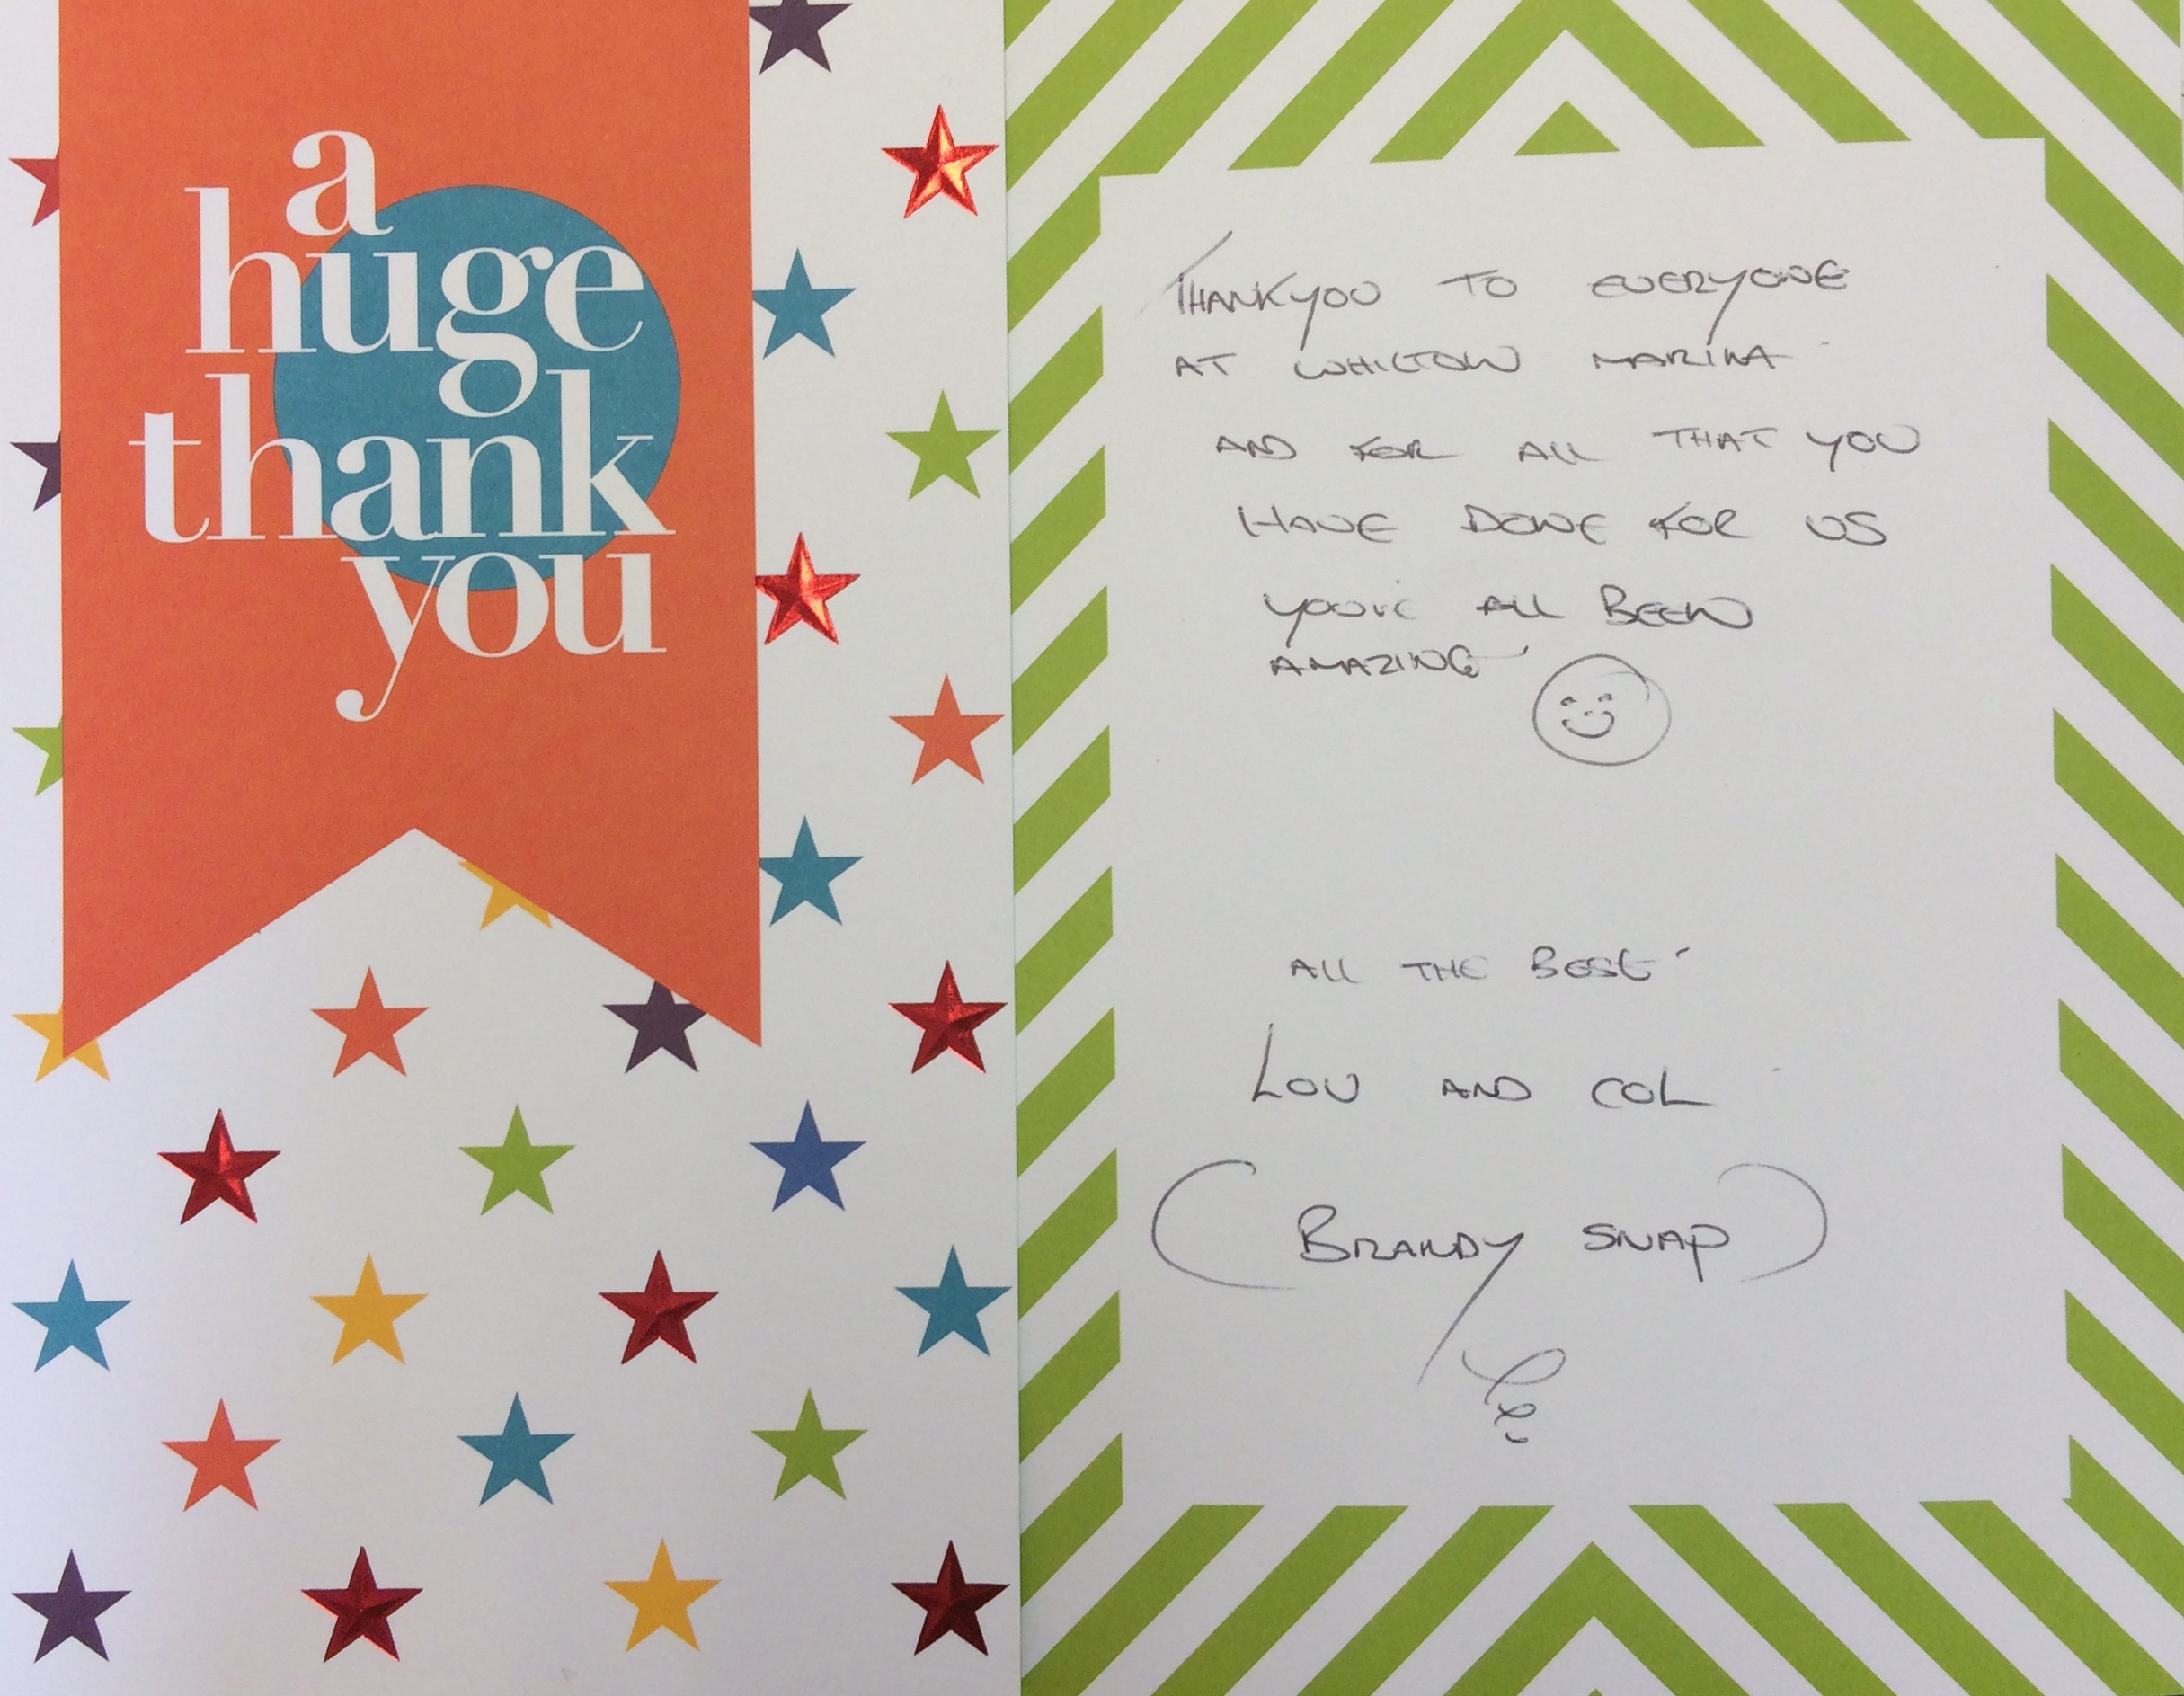 a
huge
thank
you
THANKYOU TO EVERYONE
AT WHILTON MARINA
AND FOR ALL THAT YOU
HAVE DONE FOR US
YOUVE ALL BEEN
AMAZING
ALL THE BEST
LOU AND COL
(BRANDY SNAP)